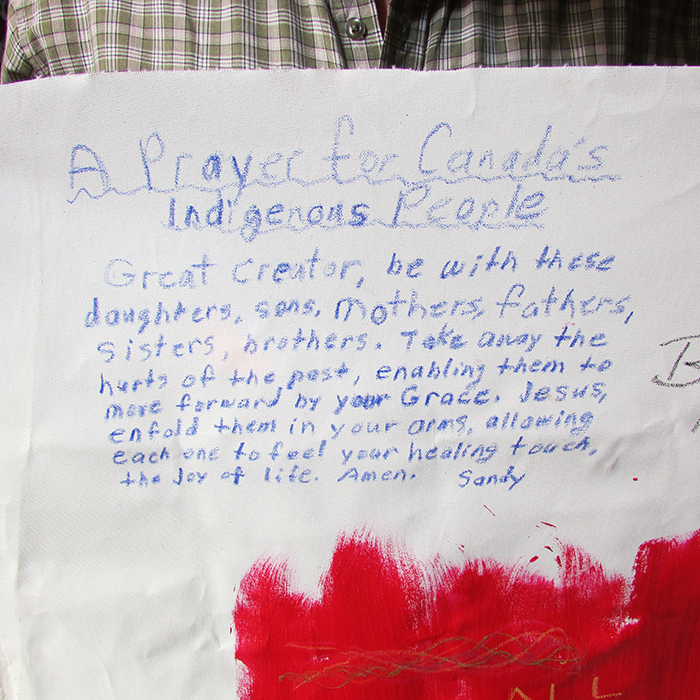 A Prayer for Canada's
Indigenous People
Great Creator, be with these
daughters, sons, Mothers, fathers,
Sisters, brothers. Take away the
hurts of the past, enabling them to
move forward by your Grace. Jesus,
enfold them in your arms, allowing
each one to feel your healing touch,
the Joy of life. Amen. Sandy